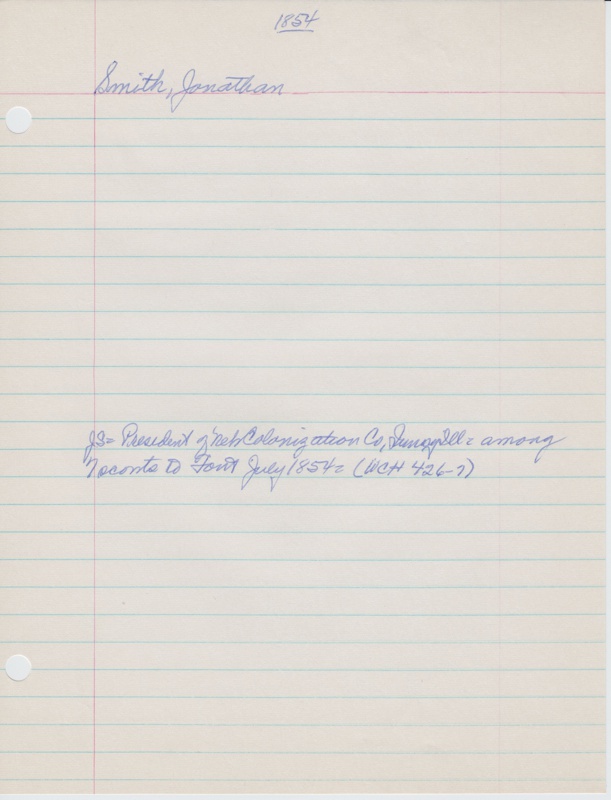 1854
Smith, Jonathan
JS= President of Neb Colonization Co, Ill = among
7 scouts to Font July 1854= (WCH 426-7)